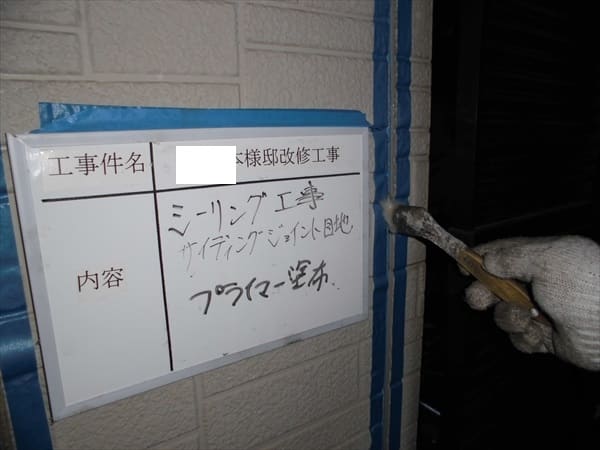 工事件名
本様邸改修工事
内容
シーリング工事
サイディングジョイント目地
プライマー塗布.